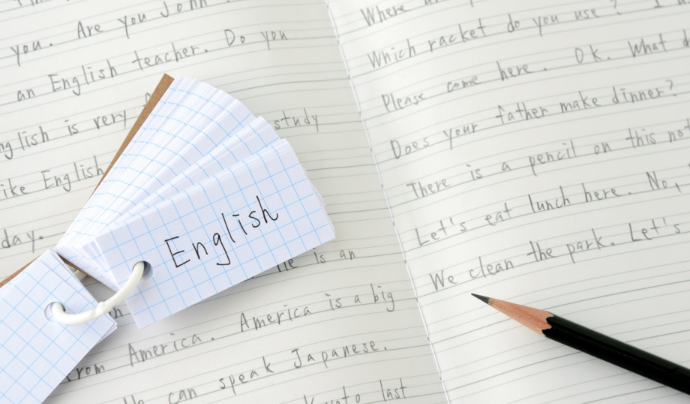 you. Are you John
an English teacher. Do you
English is very
study
like English
day.
is an
America is a big
from America.
can speak Japanese.
last
English
Where
Which racket do you use?
Please come here. OK. What
Does your father make dinner?
There is a pencil on this
Let's eat lunch here. No,
We clean the park. Let's